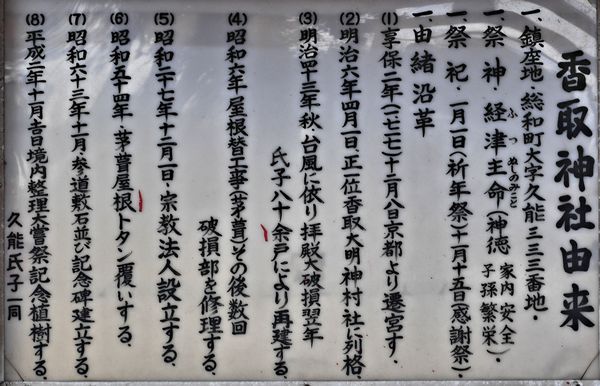 香取神社由来
一、鎮座地・総和町大字久能三三三番地・
一、祭神・経津主命(神徳 家内安全 子孫繁栄)
ふつぬしのみこと
一、祭祀・一月一日(祈年祭)十一月十五日(感謝祭)・
一、由緒沿革
(1)享保二年(一七一七)十二月八日京都より遷宮す・
(2)明治六年四月一日、正一位香取大明神村社に列格・
(3)明治四十三年秋、台風に依り拝殿大破損翌年
氏子八十余戸により再建する・
(4)昭和六年屋根替工事(茅葺)その後数回
破損部を修理する・
(5)昭和二十七年十二月一日・宗教法人設立する、
(6)昭和五十四年・茅葺屋根トタン覆いする、
(7)昭和六十三年十一月・参道敷石並び記念碑建立する、
(8)平成二年十一月吉日境内整理大嘗祭記念植樹する、
久能氏子一同